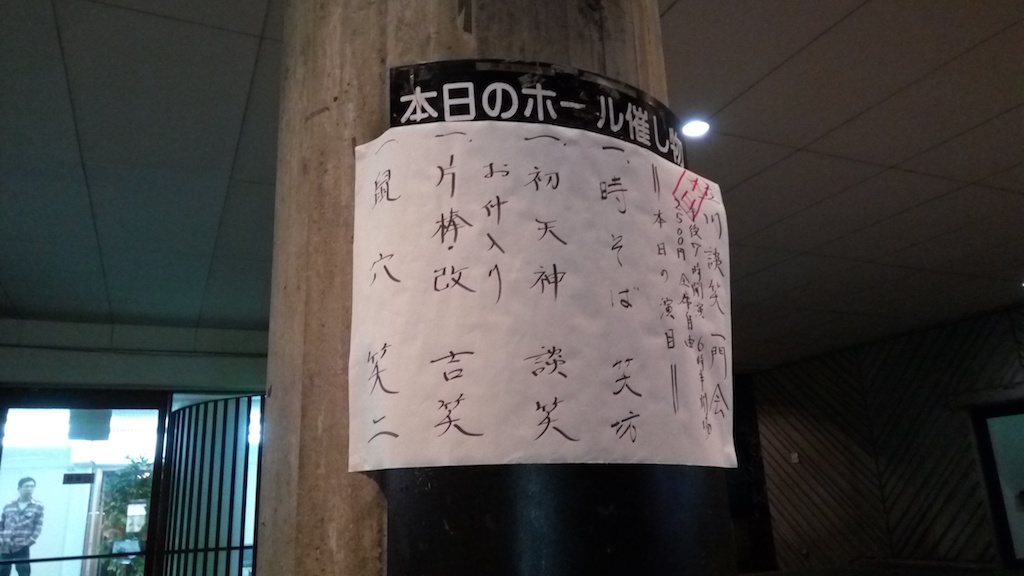 本日のホール催し物
立川談笑一門会
500円 全席自由
＝本日の演目＝
一、時そば 笑坊
一、初天神 談笑
お仲入り
一、片棒・改 吉笑
一、鼠穴 笑二